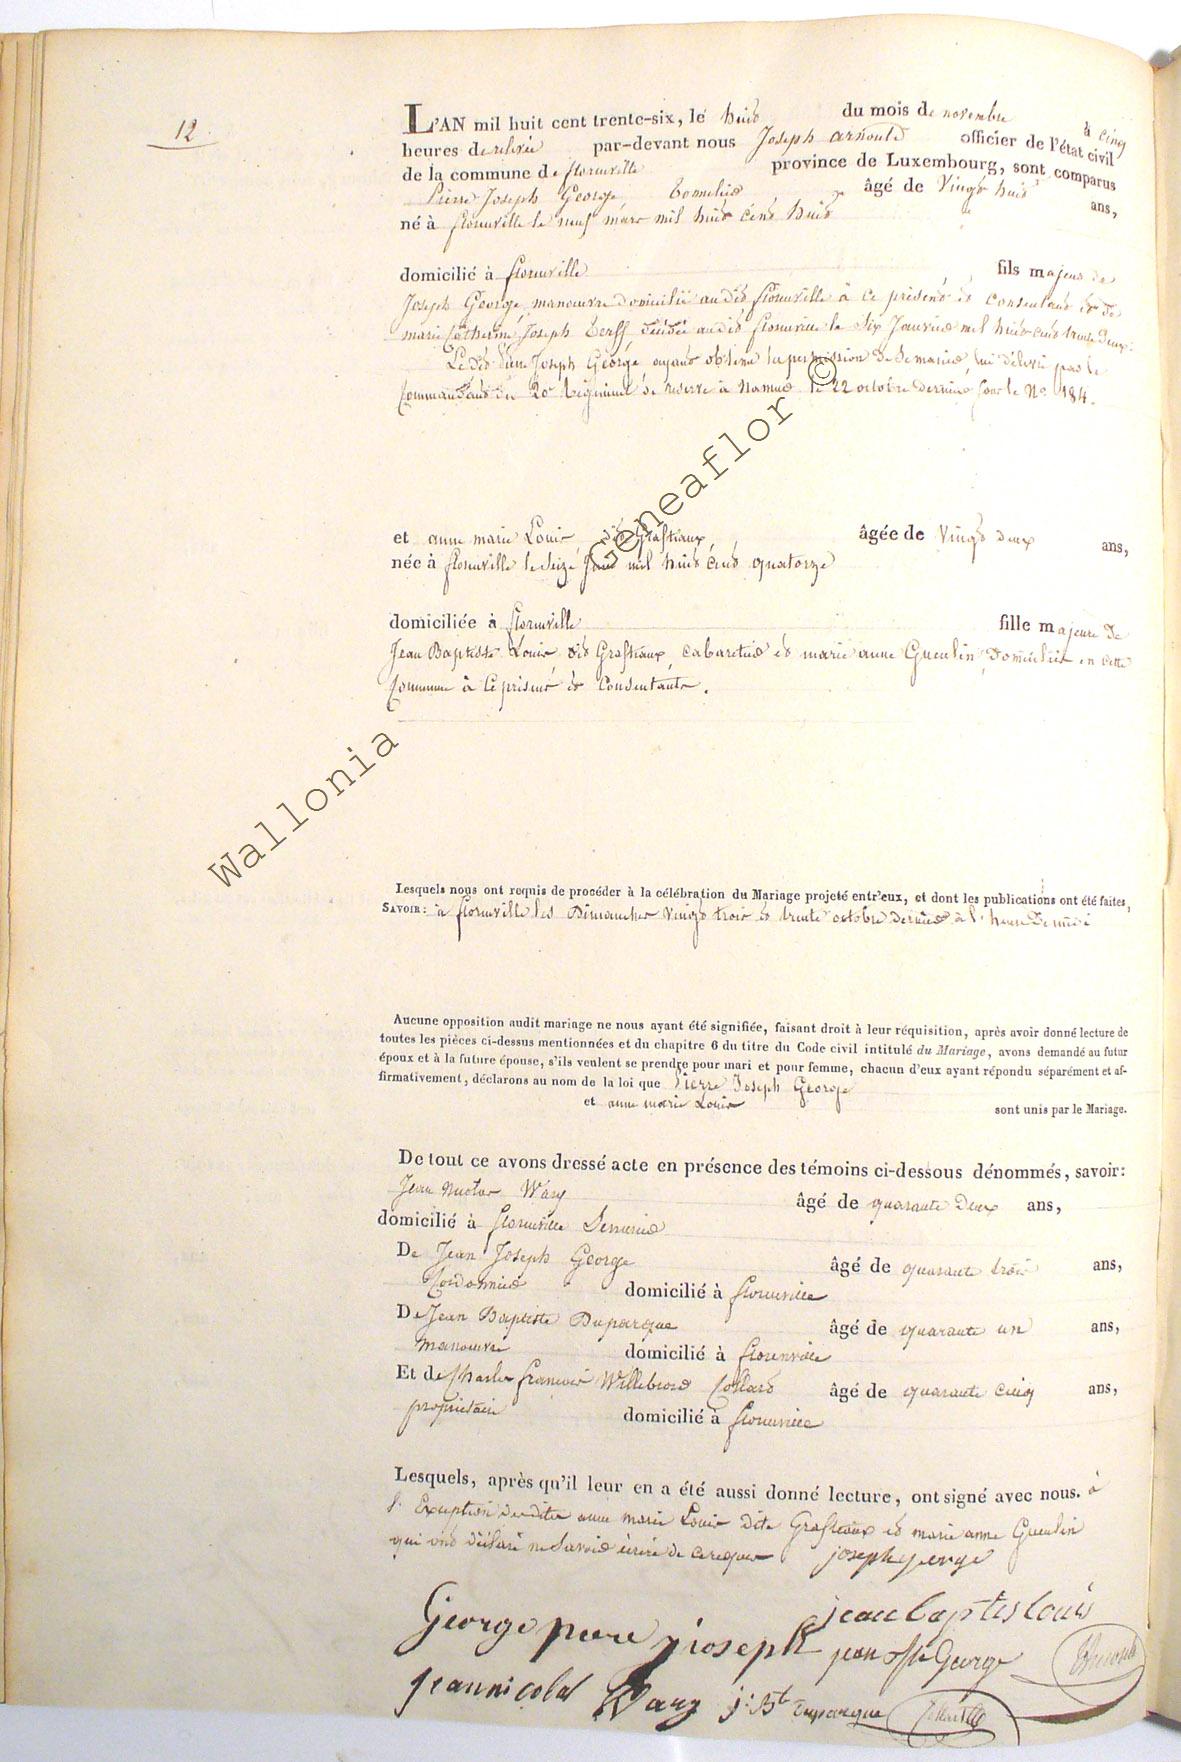 12
L'AN mil huit cent trente-six, le huit du mois de novembre à cinq
heures de relevée par-devant nous Joseph arnould officier de l'état civil
de la commune de florenville province de Luxembourg, sont comparus
Pierre Joseph George âgé de Vingt huit ans,
né à florenville le neuf mars mil huit cent huit
domicilié à florenville fils majeur de
Joseph George, manœuvre domicilié audit florenville à ce présent et consentant et de
marie Catherine Joseph décédée audit florenville le dix Janvier mil huit cent trente deux:
Ledit Pierre Joseph George ayant obtenu la permission de se marier, lui délivré par le
Commandant du 20e Régiment de réserve à Namur le 22 octobre dernier sous le No 184.
et anne marie Louis dit Grastiaux, âgée de Vingt deux ans,
née à florenville le Seize mil huit cent quatorze
domiciliée à florenville fille majeure de
Jean Baptiste Louis dit Grastiaux, cabaretier et marie anne Gueulin, Domiciliés en cette
Commune à ce présents et Consentants.
Lesquels nous ont requis de procéder à la célébration du Mariage projeté entr'eux, et dont les publications ont été faites,
SAVOIR: à florenville les Dimanches vingt trois et trente octobre dernier à l'heure de midi
Aucune opposition audit mariage ne nous ayant été signifiée, faisant droit à leur réquisition, après avoir donné lecture de
toutes les pièces ci-dessus mentionnées et du chapitre 6 du titre du Code civil intitulé du Mariage, avons demandé au futur
époux et à la future épouse, s'ils veulent se prendre pour mari et pour femme, chacun d'eux ayant répondu séparément et af-
firmativement, déclarons au nom de la loi que Pierre Joseph George
et anne marie Louis sont unis par le Mariage.
De tout ce avons dressé acte en présence des témoins ci-dessous dénommés, savoir:
Jean Nicolas Wary âgé de quarante deux ans,
domicilié à florenville
De Jean Joseph George âgé de quarante trois ans,
Cordonnier domicilié à florenville
De Jean Baptiste Duparque âgé de quarante un ans,
manœuvre domicilié à florenville
Et de Charles francois Willebrord Collard âgé de quarante cinq ans,
propriétaire domicilié à florenville
Lesquels, après qu'il leur en a été aussi donné lecture, ont signé avec nous. à
l'Exception desdites anne marie Louis dite Grastiaux et marie anne Gueulin
qui ont déclaré ne Savoir écrire de ce requis joseph george
jean baptes louis
George pere joseph jean George
jean nicolas Wary j: Bte Duparque
Wallonia Geneaflor ©